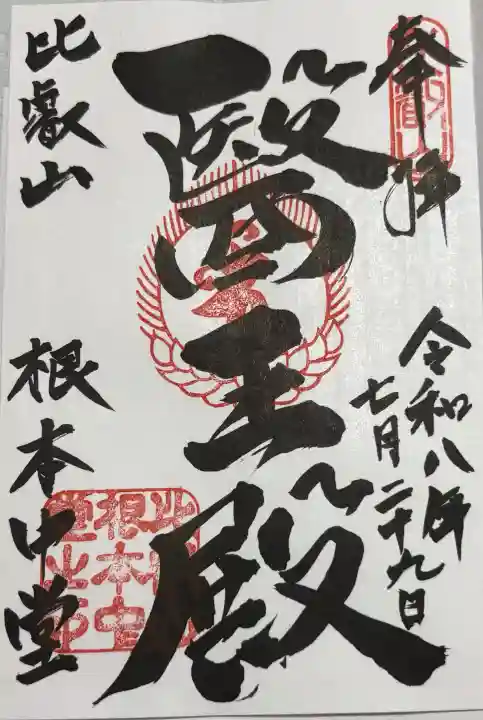 奉拝
令和八年
七月二十九日
醫王殿
比叡山
根本中堂
比叡山
根本中
堂之印